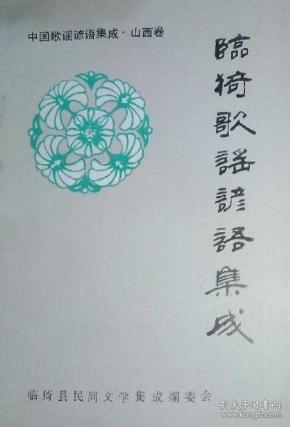 中国歌谣谚语集成·山西卷
臨猗歌謡諺語集成
临猗县民间文学集成编委会